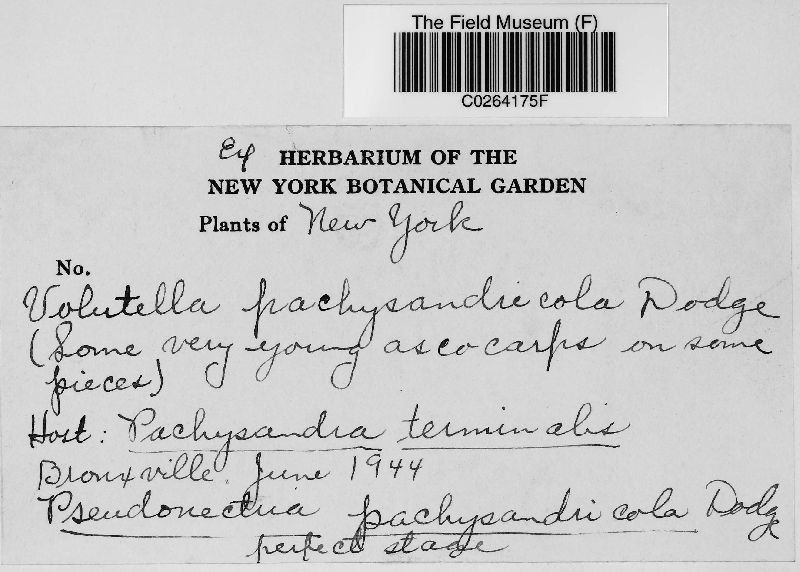 The Field Museum (F)
C0264175F
Ex HERBARIUM OF THE
NEW YORK BOTANICAL GARDEN
Plants of New York
No.
Volutella pachysandricola Dodge
(Some very young ascocarps on some
pieces)
Host: Pachysandra terminalis
Bronxville. June 1944
Pseudonectria pachysandricola Dodge
perfect stage